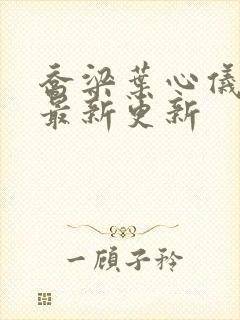 乔梁葉心儀
最新更新
一顾子衿